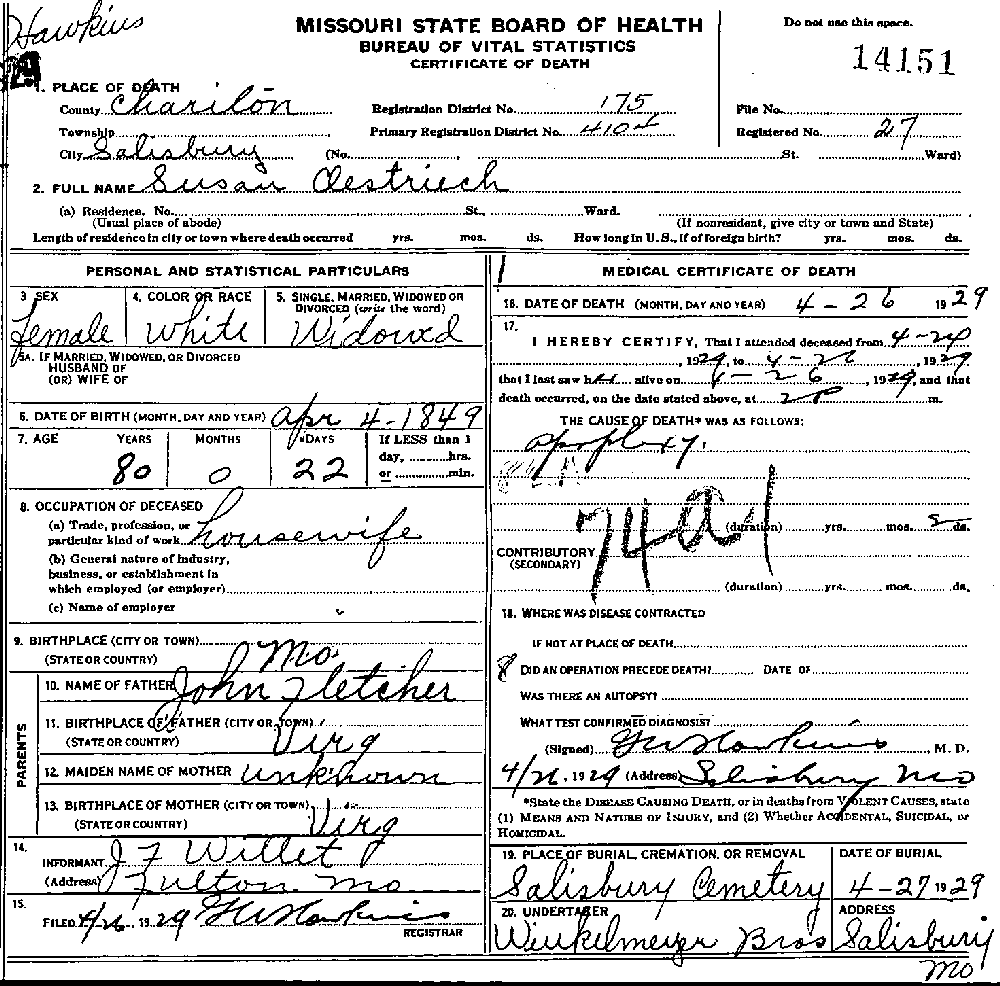 Hawkins
MISSOURI STATE BOARD OF HEALTH
BUREAU OF VITAL STATISTICS
CERTIFICATE OF DEATH
Do not use this space.
14151
1. PLACE OF DEATH
County Chariton Registration District No. 175 File No.
Township Primary Registration District No. 4104 Registered No. 27
City Salisbury (No. , St. Ward)
2. FULL NAME Susan Oestriech
(a) Residence. No. St., Ward.
(Usual place of abode) (If nonresident, give city or town and State)
Length of residence in city or town where death occurred yrs. mos. ds. How long in U.S., if of foreign birth? yrs. mos. ds.
PERSONAL AND STATISTICAL PARTICULARS
3 SEX
Female
4. COLOR OR RACE
White
5. SINGLE, MARRIED, WIDOWED OR
DIVORCED (write the word)
Widowed
5A. IF MARRIED, WIDOWED, OR DIVORCED
HUSBAND OF
(OR) WIFE OF
6. DATE OF BIRTH (MONTH, DAY AND YEAR) Apr 4-1849
7. AGE YEARS MONTHS DAYS If LESS than 1
day, hrs.
or min.
80 0 22
8. OCCUPATION OF DECEASED
(a) Trade, profession, or
particular kind of work housewife
(b) General nature of industry,
business, or establishment in
which employed (or employer)
(c) Name of employer
9. BIRTHPLACE (CITY OR TOWN)
(STATE OR COUNTRY) Mo.
PARENTS
10. NAME OF FATHER John Fletcher
11. BIRTHPLACE OF FATHER (CITY OR TOWN)
(STATE OR COUNTRY) Virg
12. MAIDEN NAME OF MOTHER unknown
13. BIRTHPLACE OF MOTHER (CITY OR TOWN)
(STATE OR COUNTRY) Virg
14.
INFORMANT J F Willet
(Address) Fulton Mo
15.
FILED 4/26, 1929 G W Hawkins
REGISTRAR
MEDICAL CERTIFICATE OF DEATH
16. DATE OF DEATH (MONTH, DAY AND YEAR) 4-26 1929
17.
I HEREBY CERTIFY, That I attended deceased from 4-24
, 1929, to 4-26, 1929
that I last saw her alive on 4-26, 1929, and that
death occurred, on the date stated above, at 2 P m.
THE CAUSE OF DEATH* WAS AS FOLLOWS:
Apoplexy.
74a1
(duration) yrs. mos. 2 ds.
CONTRIBUTORY
(SECONDARY)
(duration) yrs. mos. ds.
18. WHERE WAS DISEASE CONTRACTED
IF NOT AT PLACE OF DEATH
DID AN OPERATION PRECEDE DEATH? DATE OF
WAS THERE AN AUTOPSY?
WHAT TEST CONFIRMED DIAGNOSIS?
(Signed) G W Hawkins, M. D.
4/26, 1929 (Address) Salisbury Mo
*State the DISEASE CAUSING DEATH, or in deaths from VIOLENT CAUSES, state
(1) MEANS AND NATURE OF INJURY, and (2) Whether ACCIDENTAL, SUICIDAL, or
HOMICIDAL.
19. PLACE OF BURIAL, CREMATION, OR REMOVAL
Salisbury Cemetery
DATE OF BURIAL
4-27 1929
20. UNDERTAKER
Winkelmeyer Bros
ADDRESS
Salisbury
Mo